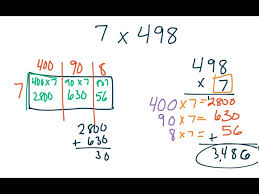 7 x 498
400 90 8
7
400x7 90x7 8x7
2800 630 56
2800
+ 630
30
498
x 7
400 x7 = 2800
90 x7 = 630
8 x7 = 56
+
3,486